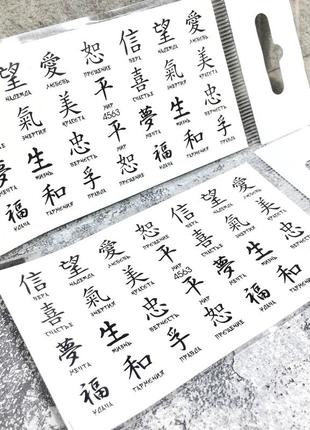 望 愛 恕 信 望 愛
НАДЕЖДА ЛЮБОВЬ ПРОЩЕНИЕ ВЕРА НАДЕЖДА ЛЮБОВЬ
氣 美 平 喜 氣 美
ЭНЕРГИЯ КРАСОТА МИР СЧАСТЬЕ ЭНЕРГИЯ КРАСОТА
4563
夢 生 忠 平 夢 生 忠
МЕЧТА ЖИЗНЬ ВЕРНОСТЬ МИР МЕЧТА ЖИЗНЬ ВЕРНОСТЬ
福 和 孚 恕 福 和 孚
УДАЧА ГАРМОНИЯ ПРАВДА ПРОЩЕНИЕ УДАЧА ГАРМОНИЯ ПРАВДА
信 望 愛 恕 信 望 愛
ВЕРА НАДЕЖДА ЛЮБОВЬ ПРОЩЕНИЕ ВЕРА НАДЕЖДА ЛЮБОВЬ
喜 氣 美 平 喜 氣 美
СЧАСТЬЕ ЭНЕРГИЯ КРАСОТА МИР СЧАСТЬЕ ЭНЕРГИЯ КРАСОТА
4563
夢 生 忠 平 夢 生 忠
МЕЧТА ЖИЗНЬ ВЕРНОСТЬ МИР МЕЧТА ЖИЗНЬ ВЕРНОСТЬ
福 和 孚 恕 福 和 孚
УДАЧА ГАРМОНИЯ ПРАВДА ПРОЩЕНИЕ УДАЧА ГАРМОНИЯ ПРАВДА